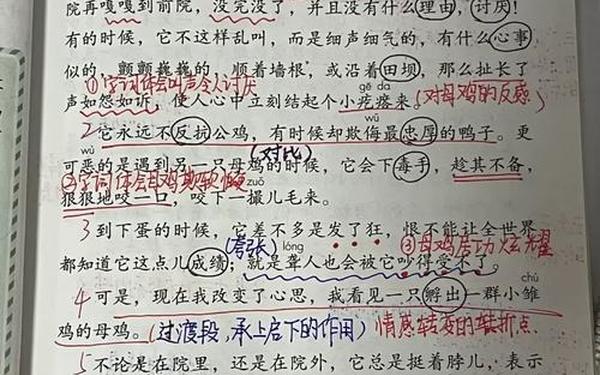 院再嘎嘎到前院，没完没了，并且没有什么理由，讨厌！
有的时候，它不这样乱叫，而是细声细气的，有什么心事
似的，颤颤巍巍的，顺着墙根，或沿着田坝，那么扯长了
①字词体会叫声令人讨厌
gē da
声如怨如诉，使人心中立刻结起个小疙瘩来。(对母鸡的反感)
wǔ
2它永远不反抗公鸡，有时候却欺侮最忠厚的鸭子。更
wù
(对比)
可恶的是遇到另一只母鸡的时候，它会下毒手，趁其不备，
②字词体会母鸡欺软怕硬
zuǒ
狠狠地咬一口，咬下一撮儿毛来。
3到下蛋的时候，它差不多是发了狂，恨不能让全世界
(夸张)
lóng
③母鸡居功炫耀
都知道它这点儿成绩；就是聋人也会被它吵得受不了。
chú
4可是，现在我改变了心思，我看见一只孵出一群小雏
鸡的母鸡。(过渡段，承上启下的作用) 情感转变的转折点
5不论是在院里，还是在院外，它总是挺着脖儿，表示